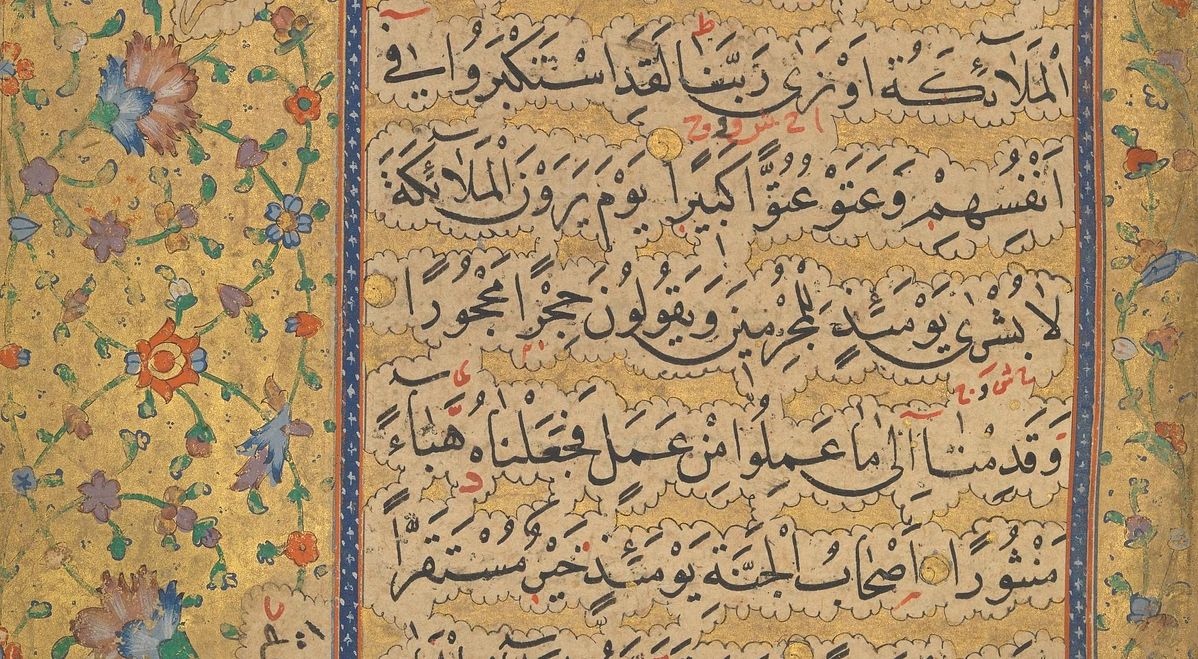 الْمَلَائِكَةُ اَوْ نَرٰى رَبَّنَا لَقَدِ اسْتَكْبَرُوا فٖي
اَنْفُسِهِمْ وَعَتَوْ عُتُوًّا كَبٖيرًا يَوْمَ يَرَوْنَ الْمَلَائِكَةَ
لَا بُشْرٰى يَوْمَئِذٍ لِلْمُجْرِمٖينَ وَيَقُولُونَ حِجْرًا مَحْجُورًا
وَقَدِمْنَا اِلٰى مَا عَمِلُوا مِنْ عَمَلٍ فَجَعَلْنَاهُ هَبَاءً
مَنْثُورًا اَصْحَابُ الْجَنَّةِ يَوْمَئِذٍ خَيْرٌ مُسْتَقَرًّا